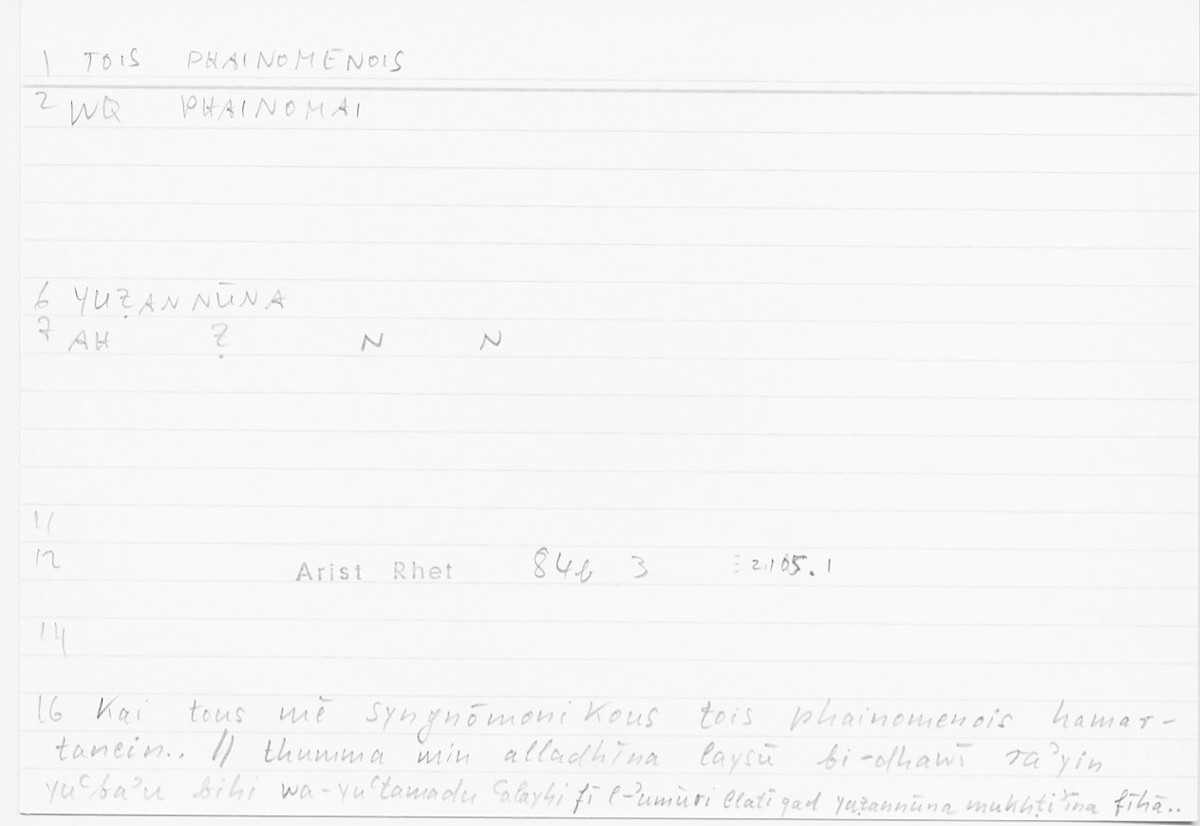 1 TOIS PHAINOMENOIS
2 WQ PHAINOMAI
6 YUẒANNŪNA
7 AH Ẓ N N
11
12 Arist Rhet 84b 3 2105.1
14
16 Kai tous mē syngnōmonikous tois phainomenois hamar-
tanein.. // thumma min alladhīna laysū bi-dhawī raʾyin
yuʿbaʾu bihi wa-yuʿtamadu ʿalayhi fī l-ʾumūri llatī qad yuẓannūna mukhṭiʾīna fīhā..